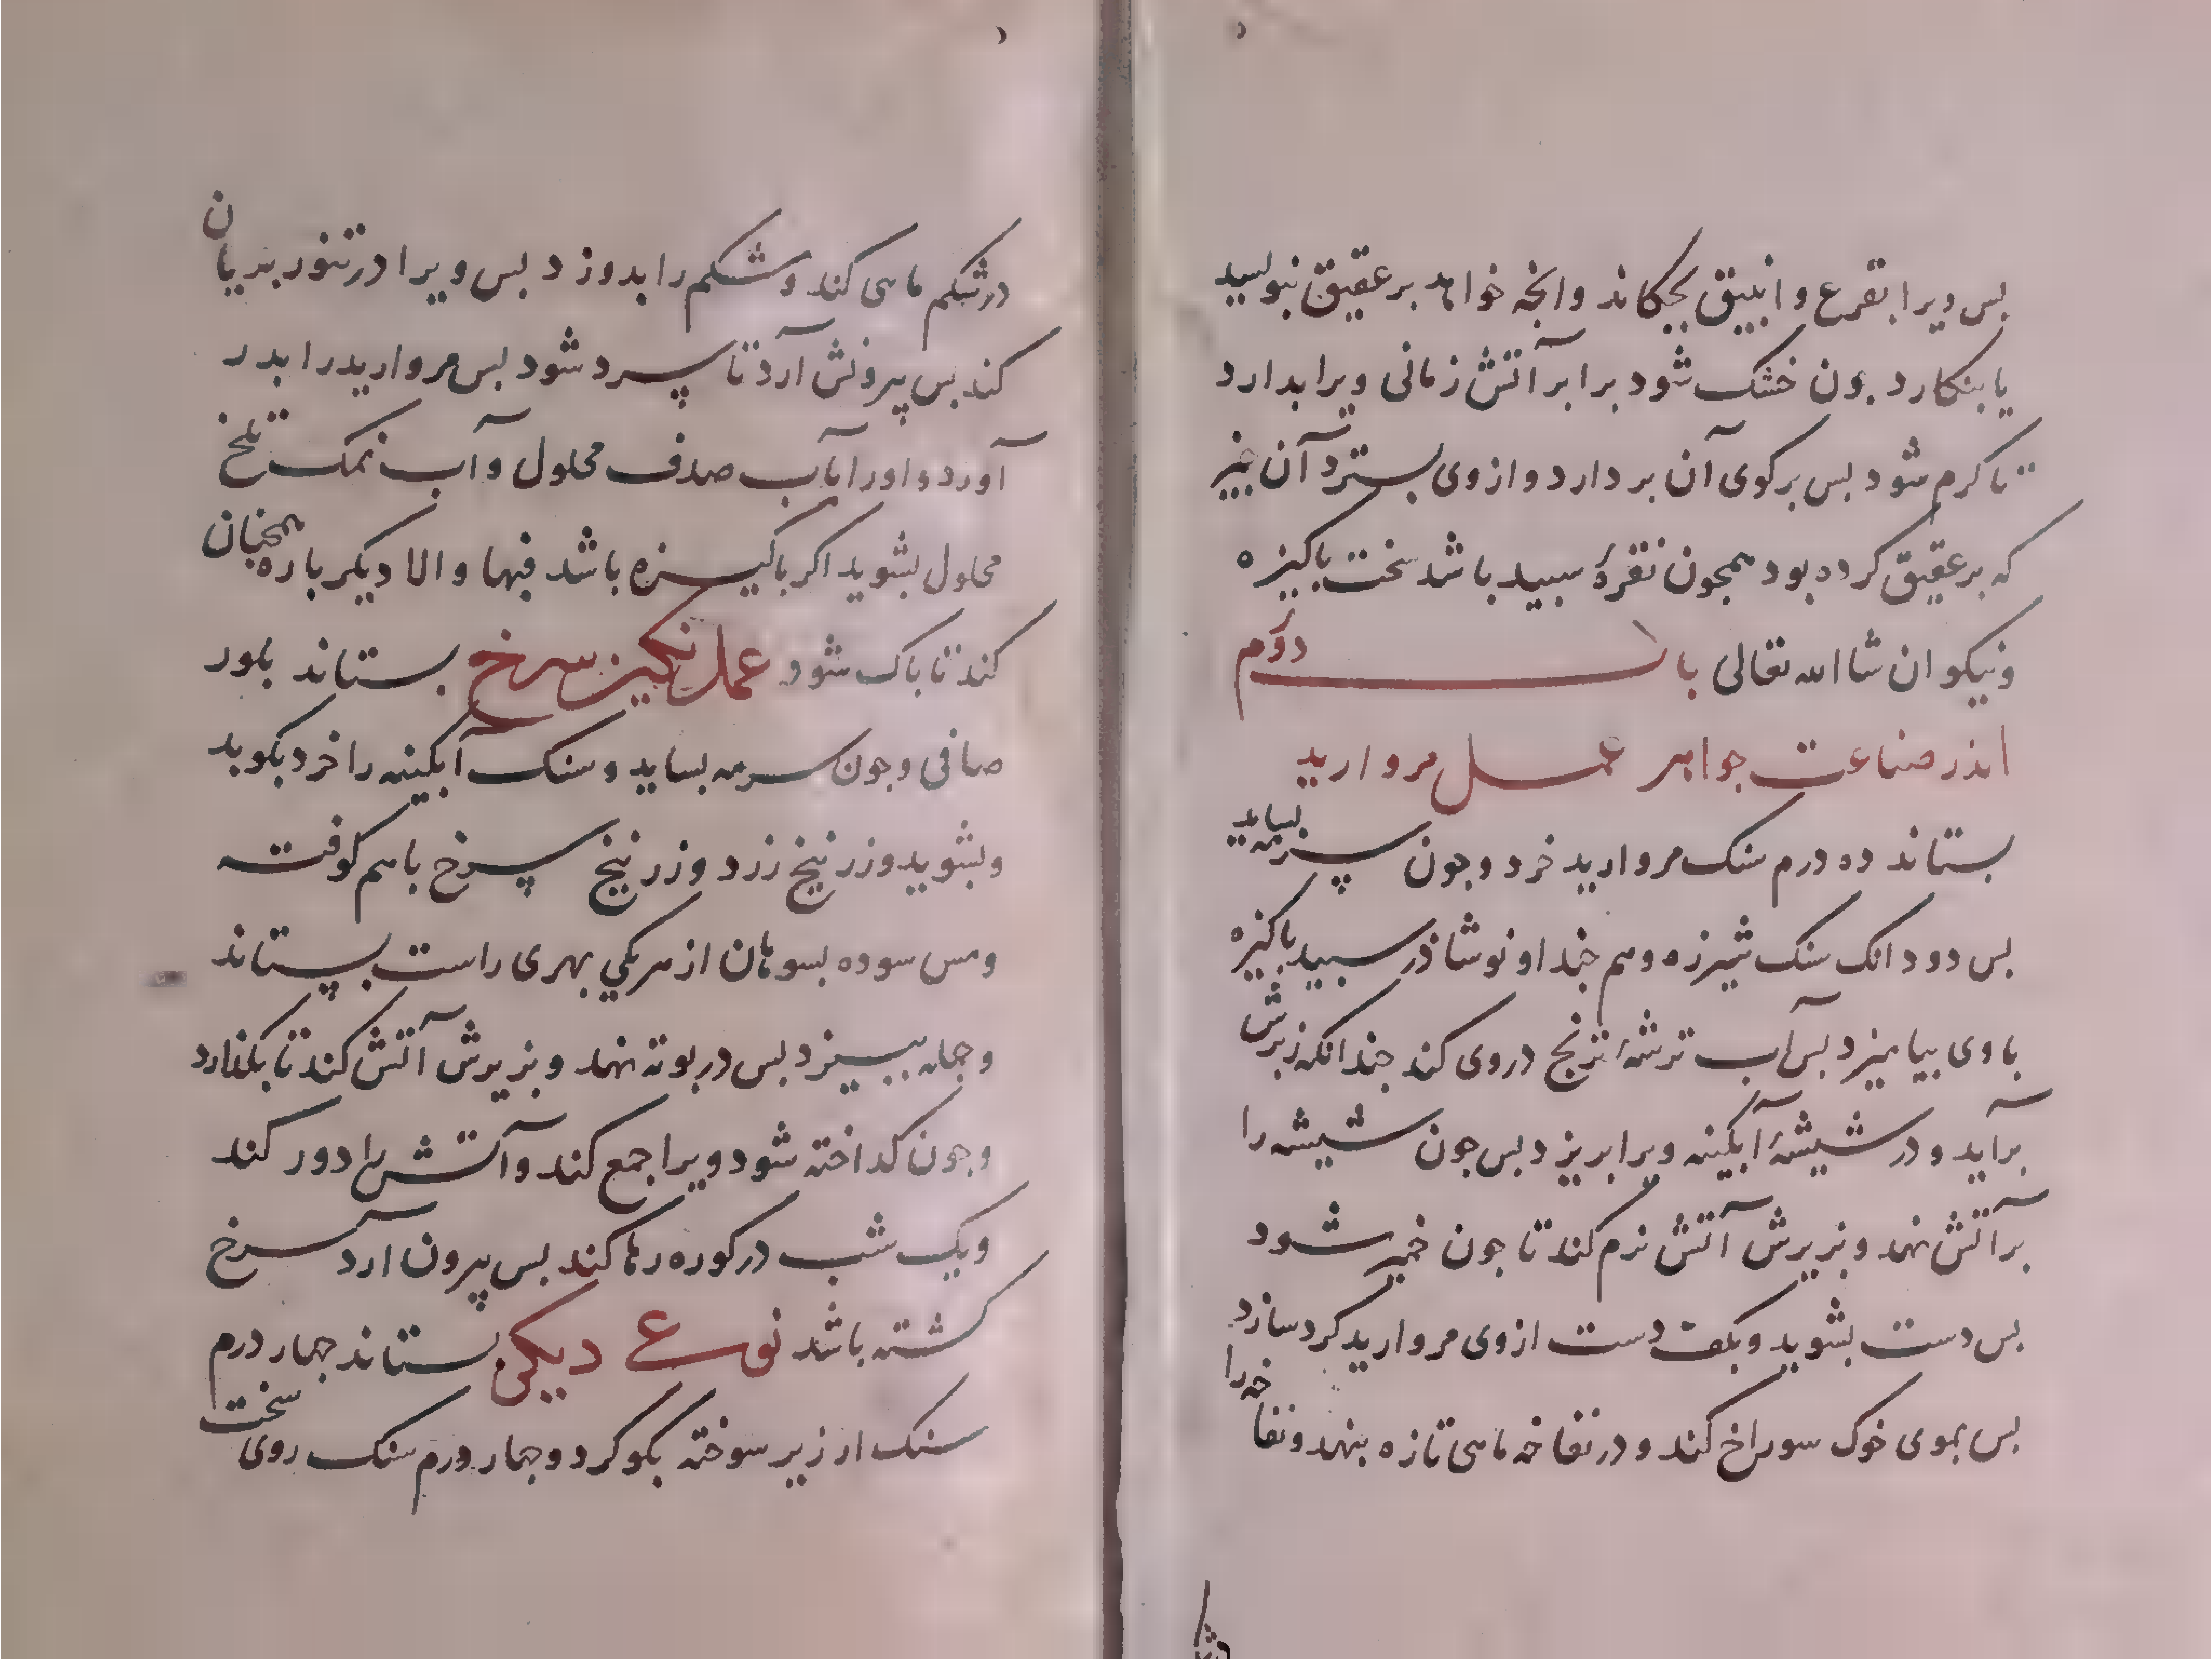 بس ویرا بقرع و انبیق بجکاند وانجه خواهد بر عقیق بنویسید
یا بنکارد جون خشک شود برابر آتش زمانی ویرا بدارد
تا کرم شود بس برکوی آن بردارد و از وی بسترد آن جیز
که بر عقیق کرده بود همجون نقرهٔ سبید باشد سخت باکیزه
ونیکو ان شا الله تعالی باب دوم
اندر صناعت جواهر عمل مروارید
بستاند ده درم سنک مروارید خرد وجون سرمه بساید
بس دو دانک سنک شیرزه وهم جند او نوشاذر سبید باکیزه
با وی بیامیزد بس آب ترشهٔ ترنج در وی کند جندانکه زبرش
برآید و در شیشهٔ آبکینه ویرا بریزد بس جون شیشه را
بر آتش نهد و بزیرش آتش نرم کند تا جون خمیر شود
بس دست بشوید و بکف دست از وی مروارید کرد سازد
بس بموی خوک سوراخ کند و در نفاخه ماهی تازه بنهد و نفاخه را
در شکم ماهی کند و شکم را بدوزد بس ویرا در تنور بریان
کند بس بیرونش آرد تا سرد شود بس مروارید را بدر
آورد و اورا بآب صدف محلول و آب نمک تلخ
محلول بشوید اکر باکیزه باشد فبها و الا دیکر باره همجنان
کند تا باک شود عمل نکین سرخ بستاند بلور
صافی وجون سرمه بساید و سنک آبکینه را خرد بکوبد
و بشوید و زرنیخ زرد و زرنیخ سرخ باهم کوفته
ومس سوده بسوهان از هر یکی بهری راست بستاند
وجمله ببیزد بس در بوته نهد و بزیرش آتش کند تا بکدازد
وجون کداخته شود ویرا جمع کند و آتش را دور کند
ویک شب در کوره رها کند بس بیرون ارد سرخ
کشته باشد نوع دیکر بستاند جهار درم
سنک ارزیز سوخته بکوکرد و جهار درم سنک روی سخت